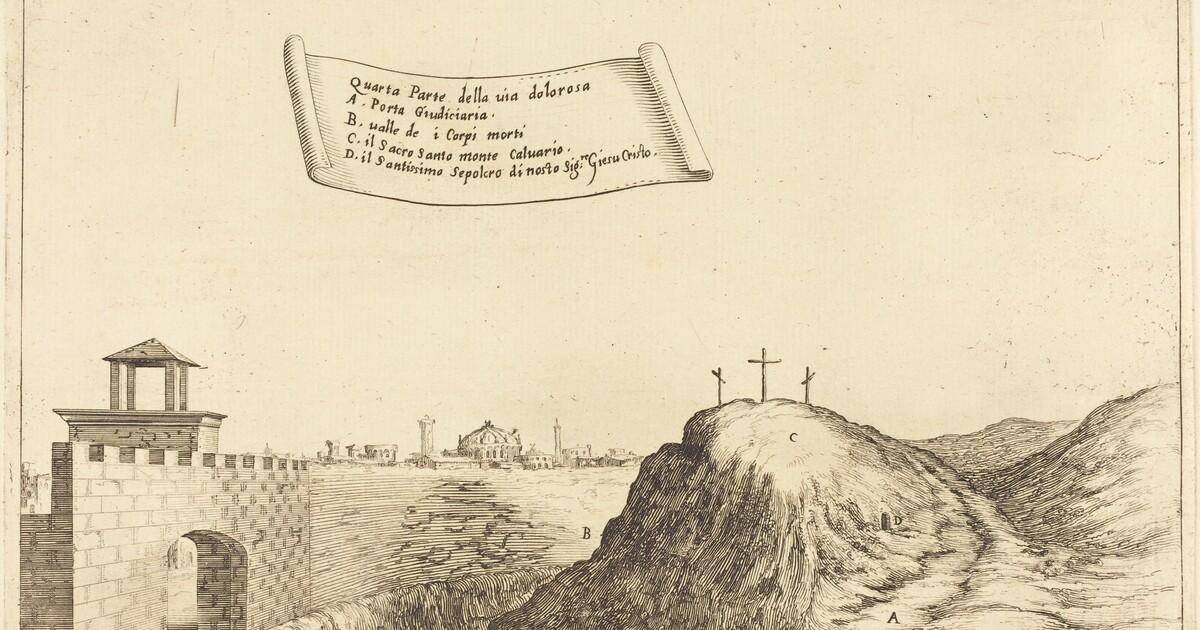 Quarta Parte della uia dolorosa
A. Porta Giudiciaria.
B. ualle de i Corpi morti
C. il Sacro Santo monte Caluario.
D. il Santissimo Sepolcro di nosto Sig.re Giesu Cristo.
C
D
B
A